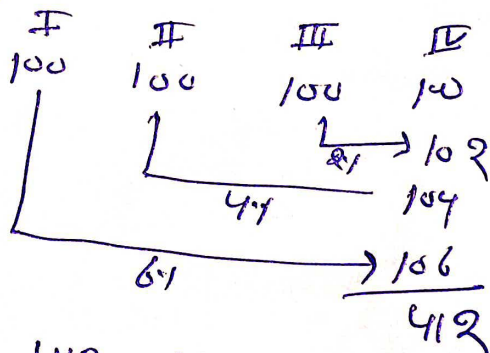 I II III IV
100 100 100 100
2% 102
4% 104
6% 106
412